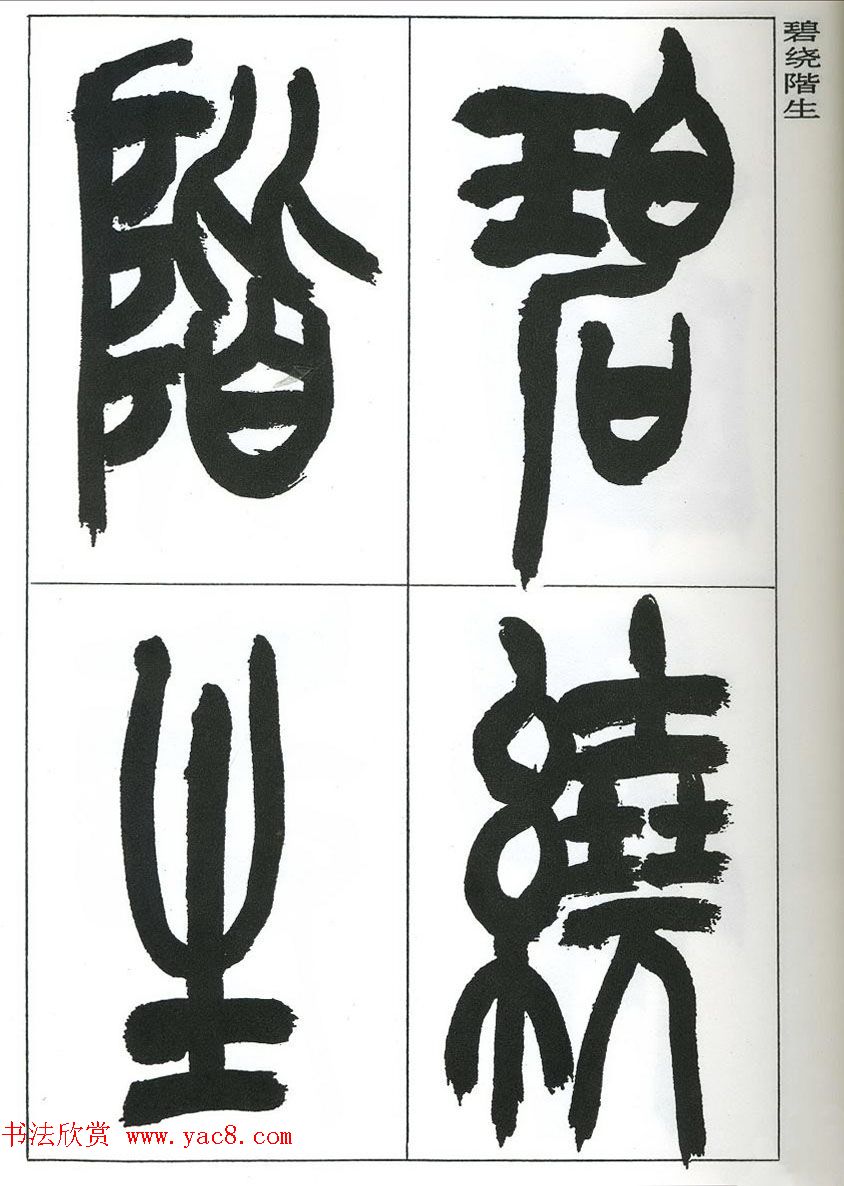 碧绕阶生
碧繞
階生
书法欣赏 www.yac8.com